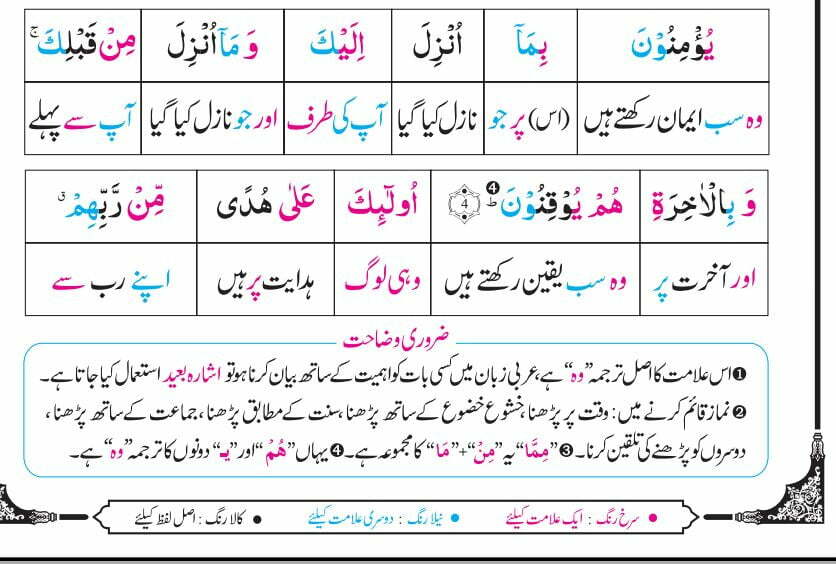 يُؤْمِنُوْنَ بِمَآ اُنْزِلَ اِلَيْكَ وَ مَآ اُنْزِلَ مِنْ قَبْلِكَ ۚ
وہ سب ایمان رکھتے ہیں (اس) پر جو نازل کیا گیا آپ کی طرف اور جو نازل کیا گیا آپ سے پہلے
وَ بِالْاٰخِرَةِ هُمْ يُوْقِنُوْنَ ❹ؕ 4 اُولٰٓئِكَ عَلٰى هُدًى مِّنْ رَّبِّهِمْ ۗ
اور آخرت پر وہ سب یقین رکھتے ہیں وہی لوگ ہدایت پر ہیں اپنے رب سے
ضروری وضاحت
❶ اس علامت کا اصل ترجمہ "وہ" ہے، عربی زبان میں کسی بات کو اہمیت کے ساتھ بیان کرنا ہو تو اشارہ بعید استعمال کیا جاتا ہے۔
❷ نماز قائم کرنے میں: وقت پر پڑھنا، خشوع خضوع کے ساتھ پڑھنا، سنت کے مطابق پڑھنا، جماعت کے ساتھ پڑھنا،
دوسروں کو پڑھنے کی تلقین کرنا۔ ❸ "مِمَّا" یہ "مِنْ" + "مَا" کا مجموعہ ہے۔ ❹ یہاں "هُمْ" اور "يـ" دونوں کا ترجمہ "وہ" ہے۔
• سرخ رنگ : ایک علامت کیلئے • نیلا رنگ : دوسری علامت کیلئے • کالا رنگ : اصل لفظ کیلئے